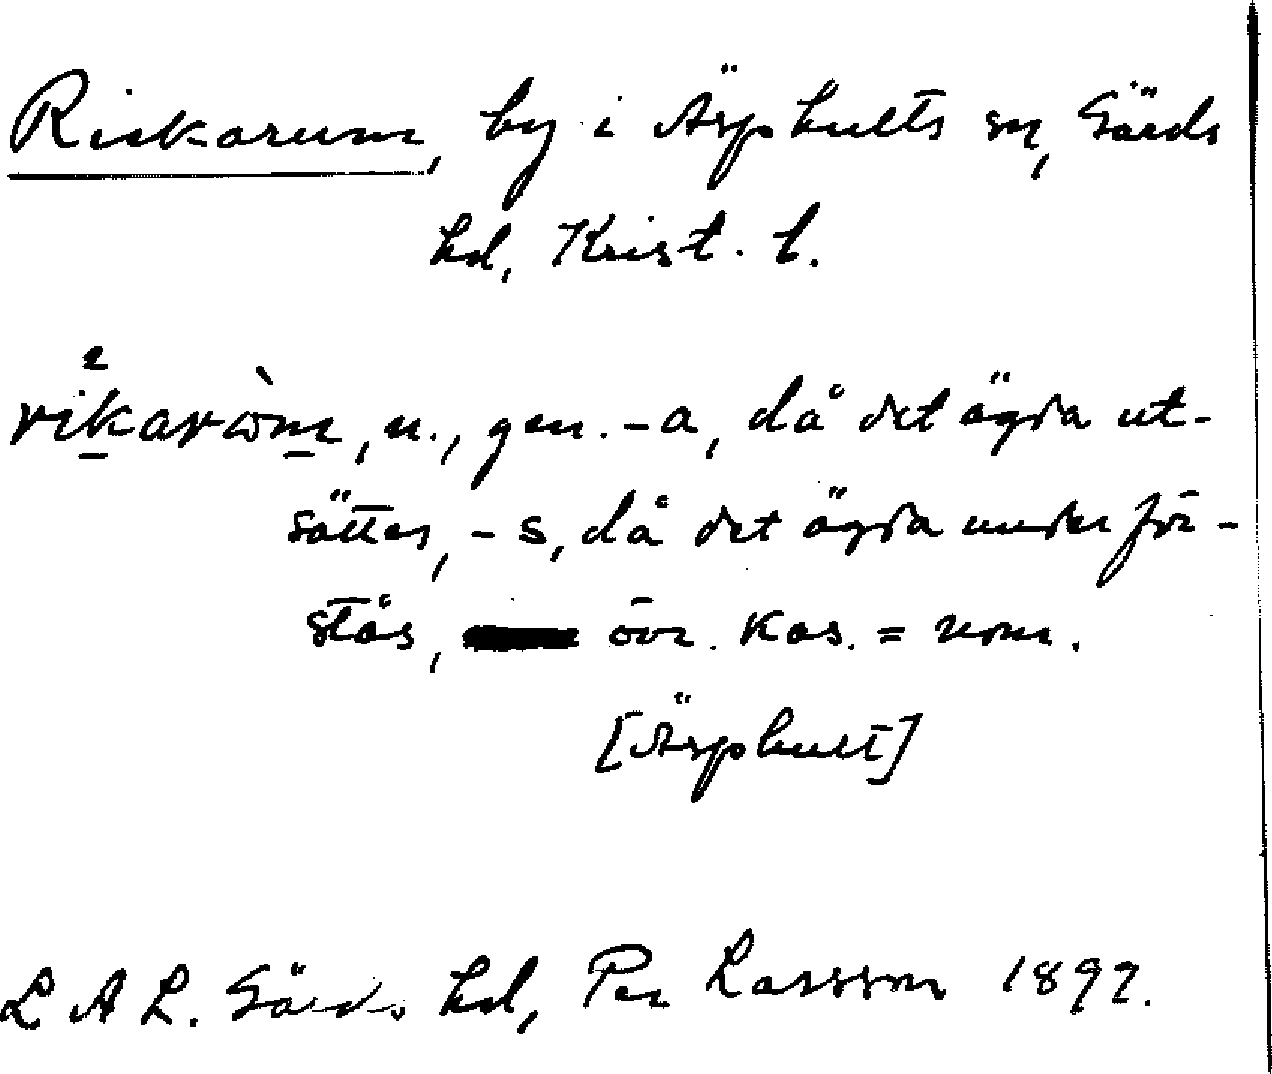 Riskarum, by i Äsphults sn, Gärds
hd, Krist. l.
rikaròm, n., gen. -a, då det ägda ut-
sättes, -s, då det ägda underför-
stås, övr. kas. = nom.
[Äsphult]
L A L. Gärds hd, Per Larsson 1897.